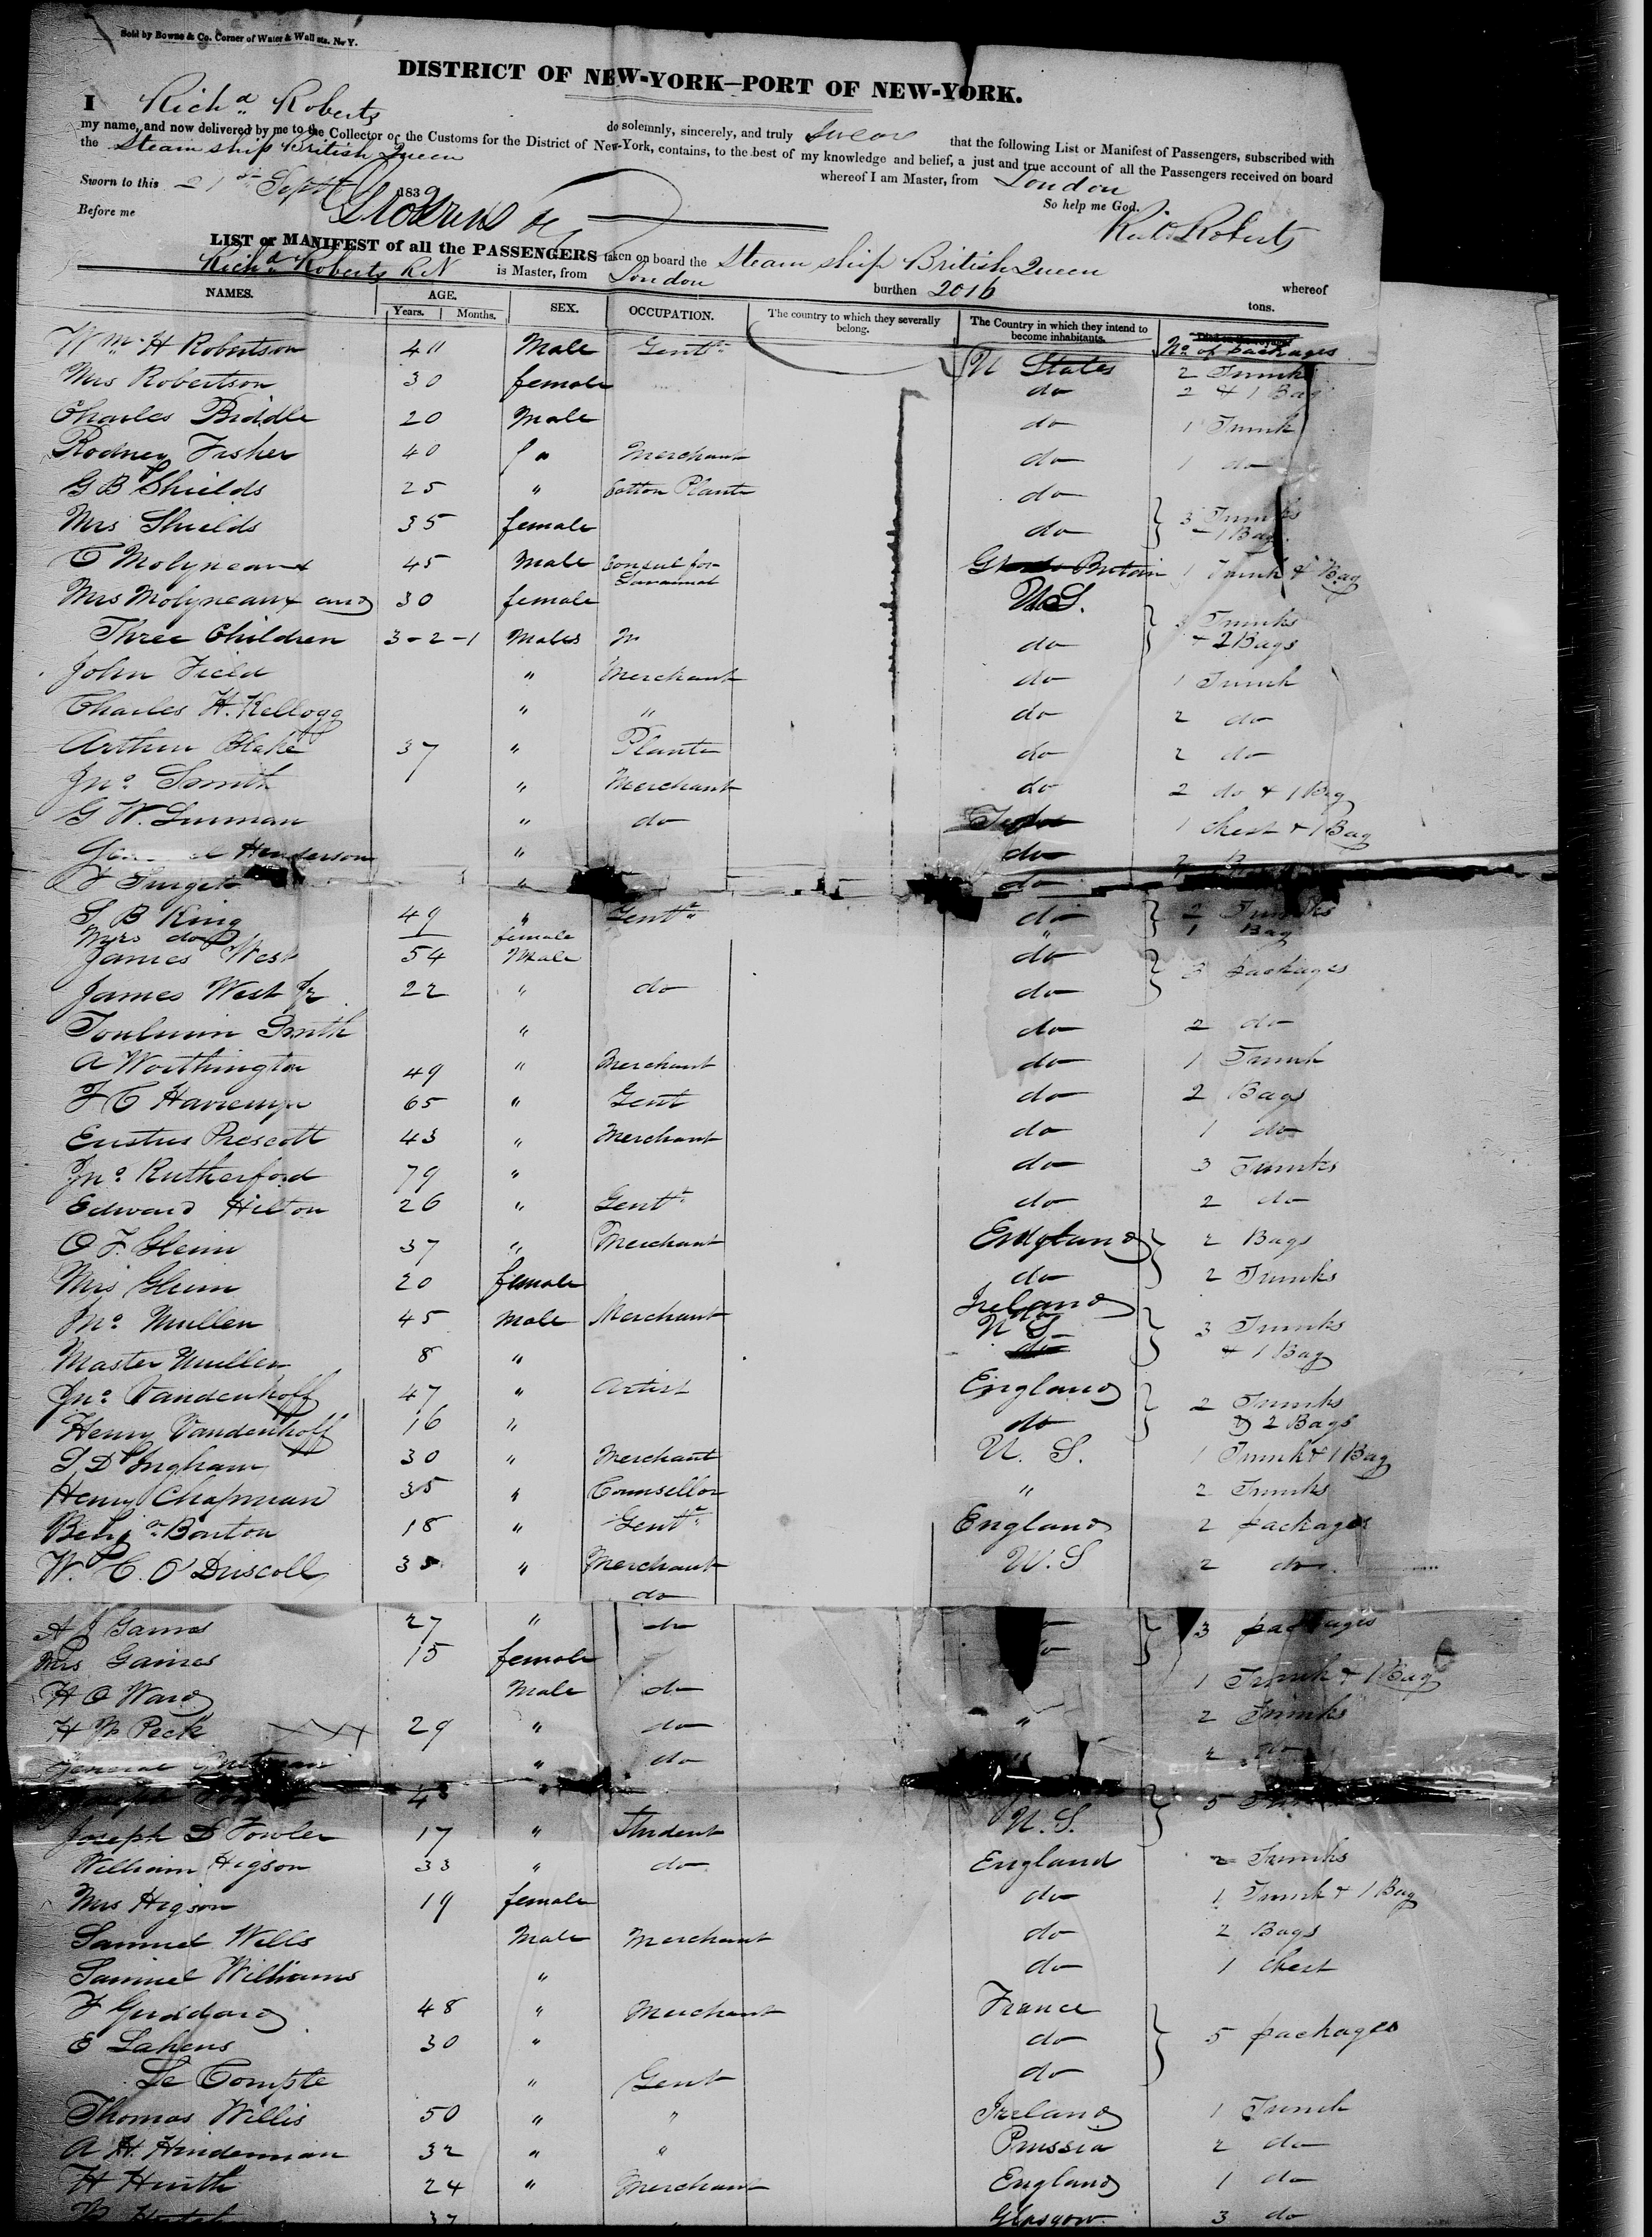 Sold by Bowne & Co. Corner of Water & Wall sts. N. Y.
DISTRICT OF NEW-YORK—PORT OF NEW-YORK.
I Richd Roberts do solemnly, sincerely, and truly swear that the following List or Manifest of Passengers, subscribed with
my name, and now delivered by me to the Collector of the Customs for the District of New-York, contains, to the best of my knowledge and belief, a just and true account of all the Passengers received on board
the Steam ship British Queen whereof I am Master, from London
Sworn to this 21st Sept 1839 So help me God.
Before me Richd Roberts
LIST or MANIFEST of all the PASSENGERS taken on board the Steam ship British Queen whereof
Richd Roberts RN is Master, from London burthen 2016 tons.
NAMES. AGE. SEX. OCCUPATION. The country to which they severally belong. The Country in which they intend to become inhabitants. No of packages
Years. Months.
Wm H Robertson 40 Male Gentn U States 2 Trunks
Mrs Robertson 30 female do 2 & 1 Bag
Charles Biddle 20 Male do 1 Trunk
Rodney Fisher 40 " Merchant do 1 do
G B Shields 25 " Cotton Plante do
Mrs Shields 35 female do 3 Trunks 1 Bag
E Molyneaux 45 Male Consul for Savannah Gt Britain 1 Trunk & Bag
Mrs Molyneaux and 30 female U.S.
Three Children 3-2-1 Males do 3 Trunks + 2 Bags
John Field " Merchant do 1 Trunk
Charles H. Kellogg " " do 2 do
Arthur Blake 37 " Plante do 2 do
Jno Smith " Merchant do 2 do & 1 Bag
G W. Lurman " do 1 Chest & 1 Bag
Henderson " do
Surget " do
S B King 49 " Gentn do 2 Trunks
Mrs do female " 1 Bag
James West 54 Male do 3 packages
James West Jr 22 " do do
Toulmin Smith " do 2 do
A Worthington 49 " Merchant do 1 Trunk
F C Havemyer 65 " Gent do 2 Bags
Eustus Prescott 43 " Merchant do 1 do
Jno Rutherford 79 " do 3 Trunks
Edward Hilton 26 " Gentn do 2 do
O F. Gleim 37 " Merchant England 2 Bags
Mrs Gleim 20 female do 2 Trunks
Jno Mullen 45 Male Merchant Ireland U S 3 Trunks
Master Mullen 8 " do & 1 Bag
Jno Vandenhoff 47 " Artist England 2 Trunks
Henry Vandenhoff 16 " do & 2 Bags
S D Ingham 30 " Merchant U. S. 1 Trunk & 1 Bag
Henry Chapman 35 " Counsellor " 2 Trunks
Benjn Barton 18 " Gentn England 2 packages
W. C. O'Driscoll 35 " Merchant U.S 2 do
do
A J Gaines 27 " do 3 packages
Mrs Gaines 15 female
H O Ward Male do 1 Trunk & 1 Bag
H Peck 29 " do " 2 Trunks
General " do 2 do
Joseph 4 " 5
Joseph D Fowler 17 " Student U.S.
William Higson 33 " do England 2 Trunks
Mrs Higson 19 female do 1 Trunk & 1 Bag
Samuel Wells Male Merchant do 2 Bags
Samuel Williams " do 1 Chest
F Guddard 48 " Merchant France
E Lahens 30 " do 5 packages
Le Compte " Gent do
Thomas Willis 50 " " Ireland 1 Trunk
A H. Hinderman 32 " " Prussia 2 do
H Huith 24 " Merchant England 1 do
37 Glasgow 3 do